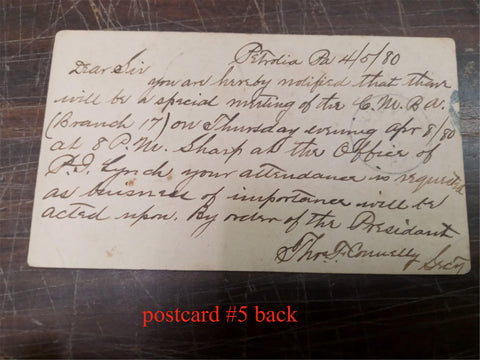 Petrolia Pa 4/5/80
Dear Sir
you are hereby notified that there
will be a special meeting of the C. M. B. A.
(Branch 17) on Thursday evening Apr 8/80
at 8 P.M. Sharp at the Office of
P. J. Lynch, your attendance is requested
as buisness of importance will be
acted upon. By order of the Presidant
Thos. F. Connelly Secty
postcard #5 back